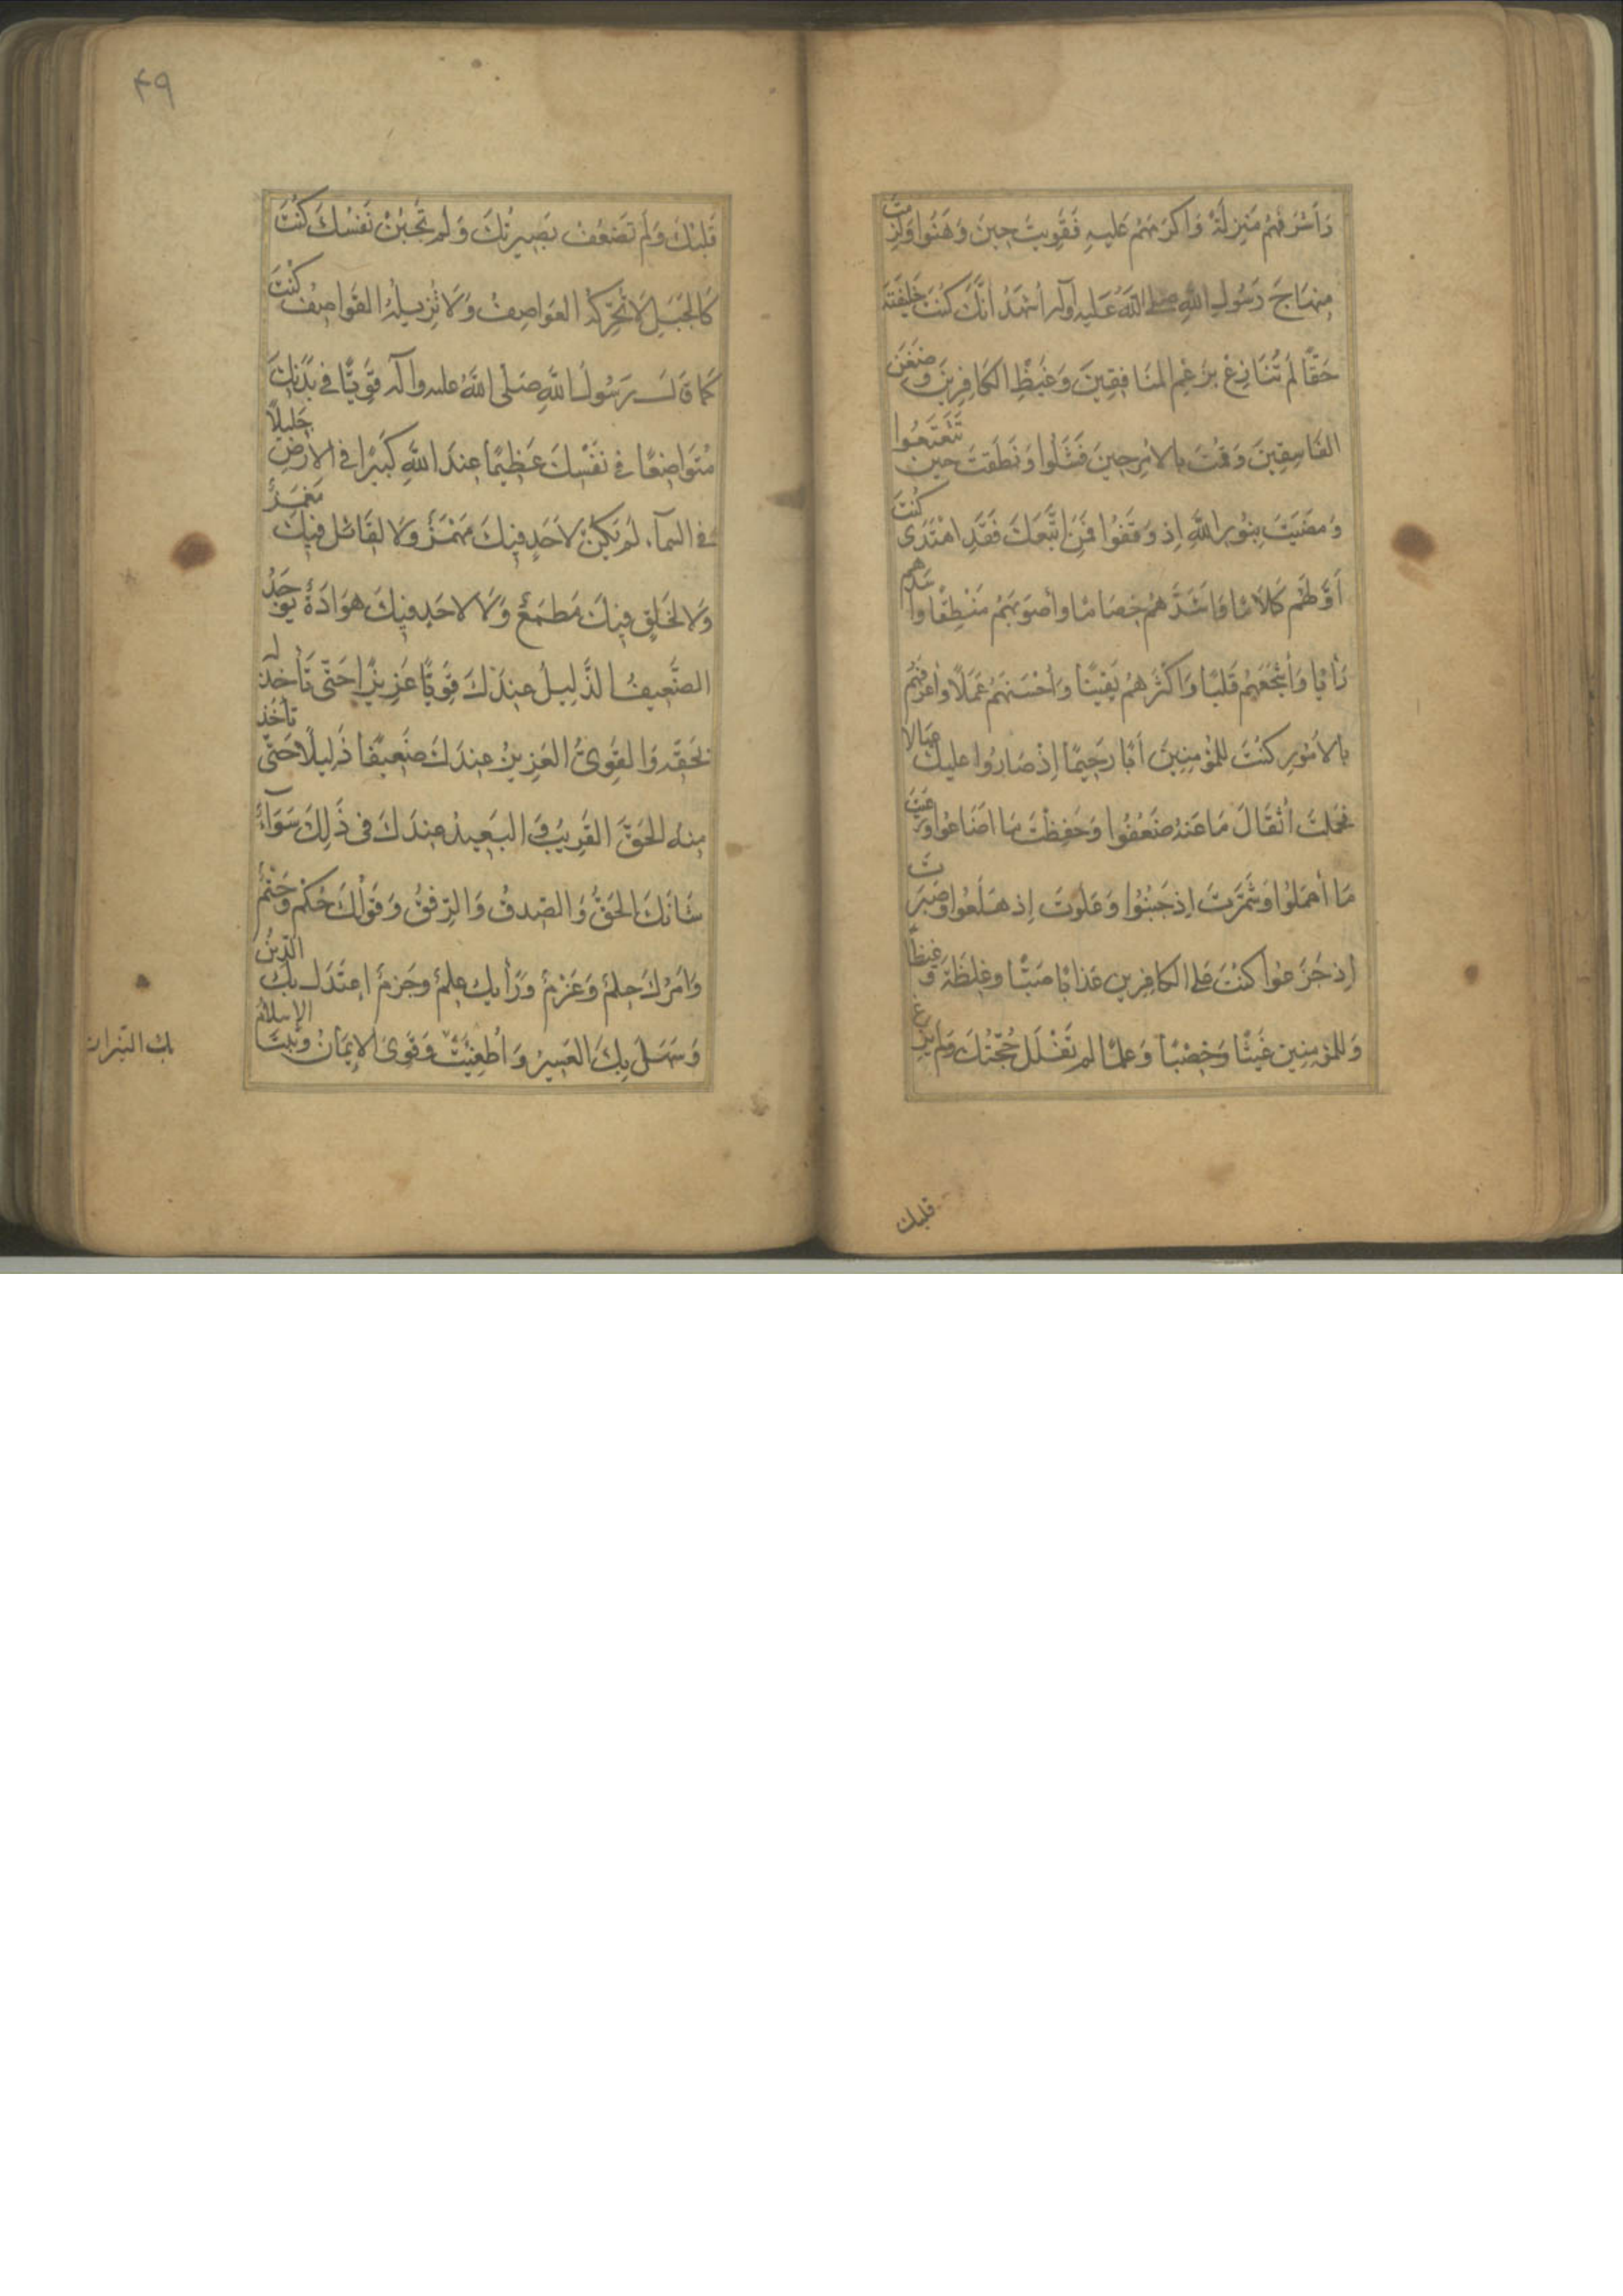 وَأَشْرَفَهُمْ مَنْزِلَةً وَأَكْرَمَهُمْ عَلَيْهِ فَقَوِيتَ حِينَ وَهَنُوا وَلَزِمْتَ
مِنْهَاجَ رَسُولِ اللهِ صلى اللهُ عَلَيْهِ وَآلِهِ أَشْهَدُ أَنَّكَ كُنْتَ خَلِيفَتَهُ
حَقًّا لَمْ تُنَازَعْ بِرَغْمِ المُنَافِقِينَ وَغَيْظِ الكَافِرِينَ وَضِغْنِ
الفَاسِقِينَ وَقُمْتَ بِالأَمْرِ حِينَ فَشَلُوا وَنَطَقْتَ حِينَ تَتَعْتَعُوا
وَمَضَيْتَ بِنُورِ اللهِ إِذْ وَقَفُوا فَمَنِ اتَّبَعَكَ فَقَدِ اهْتَدَى كُنْتَ
أَوَّلَهُمْ كَلَامًا وَأَشَدَّهُمْ خِصَامًا وَأَصْوَبَهُمْ مَنْطِقًا وَأَسَدَّهُمْ
رَأْيًا وَأَشْجَعَهُمْ قَلْبًا وَأَكْثَرَهُمْ يَقِينًا وَأَحْسَنَهُمْ عَمَلًا وَأَعْرَفَهُمْ
بِالأُمُورِ كُنْتَ لِلْمُؤْمِنِينَ أَبًا رَحِيمًا إِذْ صَارُوا عَلَيْكَ عِيَالًا
فَحَمَلْتَ أَثْقَالَ مَا عَنْهُ ضَعُفُوا وَحَفِظْتَ مَا أَضَاعُوا وَرَعَيْتَ
مَا أَهْمَلُوا وَشَمَّرْتَ إِذْ جَبُنُوا وَعَلَوْتَ إِذْ هَلَعُوا وَصَبَرْتَ
إِذْ جَزَعُوا كُنْتَ عَلَى الكَافِرِينَ عَذَابًا صَبًّا وَغِلْظَةً وَغَيْظًا
وَلِلْمُؤْمِنِينَ غَيْثًا وَخِصْبًا وَعِلْمًا لَمْ تُفْلَلْ حُجَّتُكَ وَلَمْ يَزِغْ
قلبك
۴۹
قَلْبُكَ وَلَمْ تَضْعُفْ بَصِيرَتُكَ وَلَمْ تَجْبُنْ نَفْسُكَ كُنْتَ
كَالجَبَلِ لَا تُحَرِّكُهُ العَوَاصِفُ وَلَا تُزِيلُهُ القَوَاصِفُ كُنْتَ
كَمَا قَالَ رَسُولُ اللهِ صَلَّى اللهُ عليه وآله قَوِيًّا فِي بَدَنِكَ
مُتَوَاضِعًا فِي نَفْسِكَ عَظِيمًا عِنْدَ اللهِ كَبِيرًا فِي الأَرْضِ جَلِيلًا
فِي السماء لَمْ يَكُنْ لِأَحَدٍ فِيكَ مَهْمَزٌ وَلَا لِقَائِلٍ فِيكَ مَغْمَزٌ
وَلَا لِخَلْقٍ فِيكَ مَطْمَعٌ وَلَا لِأَحَدٍ فِيكَ هَوَادَةٌ يُوجَدُ
الضَّعِيفُ الذَّلِيلُ عِنْدَكَ قَوِيًّا عَزِيزًا حَتَّى تَأْخُذَ لَهُ
بِحَقِّهِ وَالقَوِيُّ العَزِيزُ عِنْدَكَ ضَعِيفًا ذَلِيلًا حَتَّى تَأْخُذَ
مِنْهُ الحَقَّ القَرِيبُ وَالبَعِيدُ عِنْدَكَ فِي ذَلِكَ سَوَاءٌ
شَأْنُكَ الحَقُّ وَالصِّدْقُ وَالرِّفْقُ وَقَوْلُكَ حُكْمٌ وَحَتْمٌ
وَأَمْرُكَ حِلْمٌ وَعَزْمٌ وَرَأْيُكَ عِلْمٌ وَجَزْمٌ اعْتَدَلَ بِكَ الدِّينُ
وَسَهُلَ بِكَ العَسِيرُ وَأُطْفِئَتْ وَقَوِيَ الإِيمَانُ وَثَبَتَ الإِسْلَامُ
بك النيران